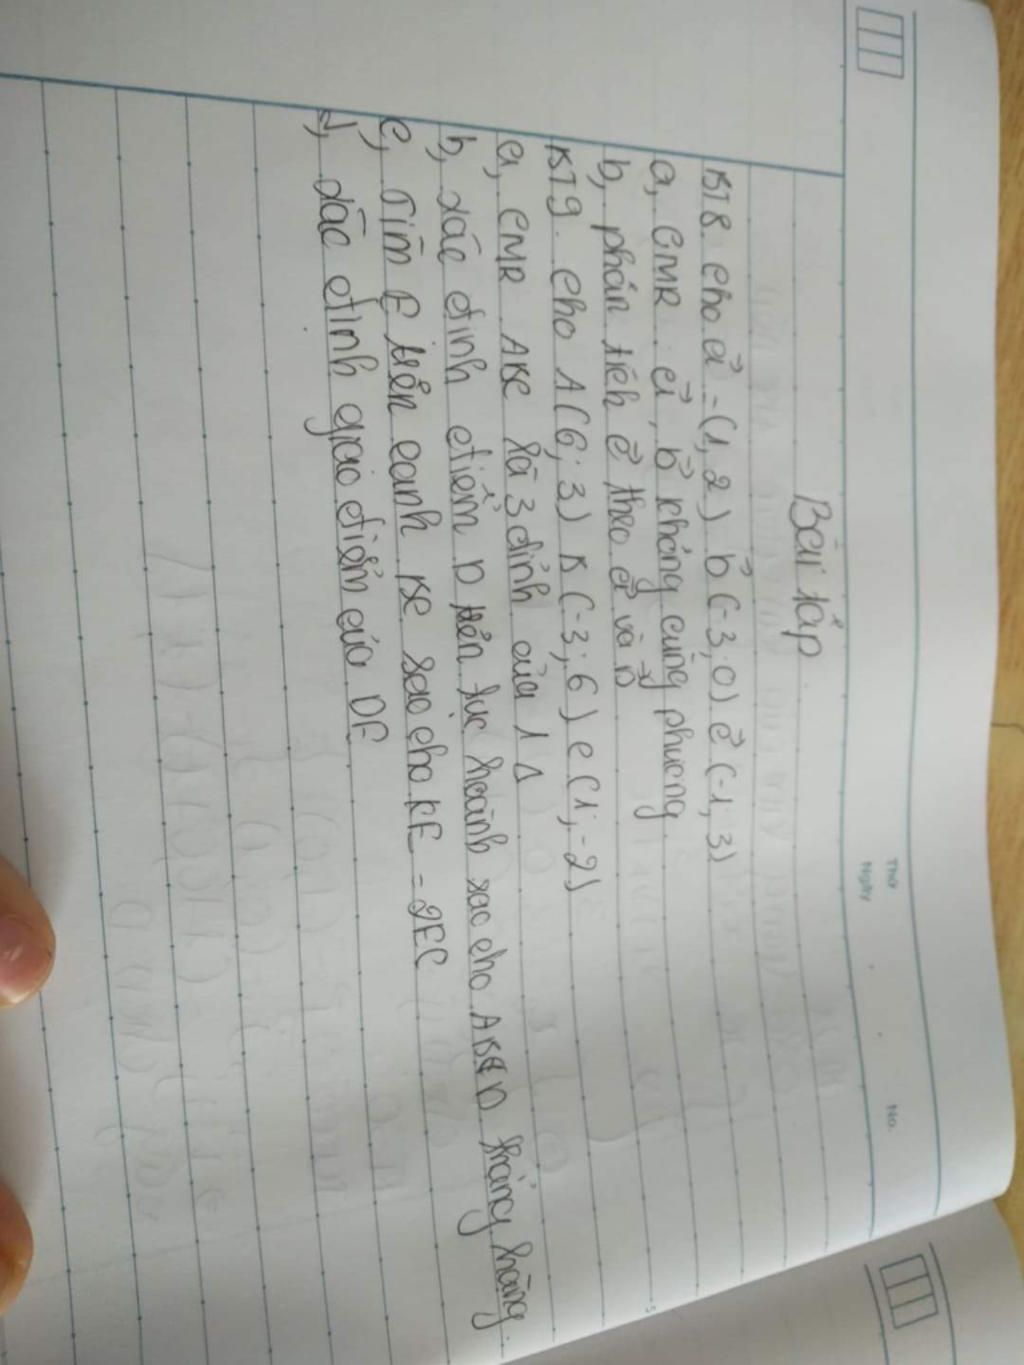 Thứ
Ngày
No.
Bài tập
BT8 cho a⃗ = (1, 2) b⃗ (-3; 0) c⃗ (-1; 3)
a, CMR a⃗, b⃗ không cùng phương
b, phân tích c⃗ theo a⃗ và b⃗
BT9. cho A(6; 3) B(-3; 6) C(1; -2)
a, CMR ABC là 3 đỉnh của 1 Δ
b, xác định điểm D trên trục hoành sao cho ABD thẳng hàng.
c, Tìm E trên cạnh BC sao cho BE = 2EC
d, xác định giao điểm của DE